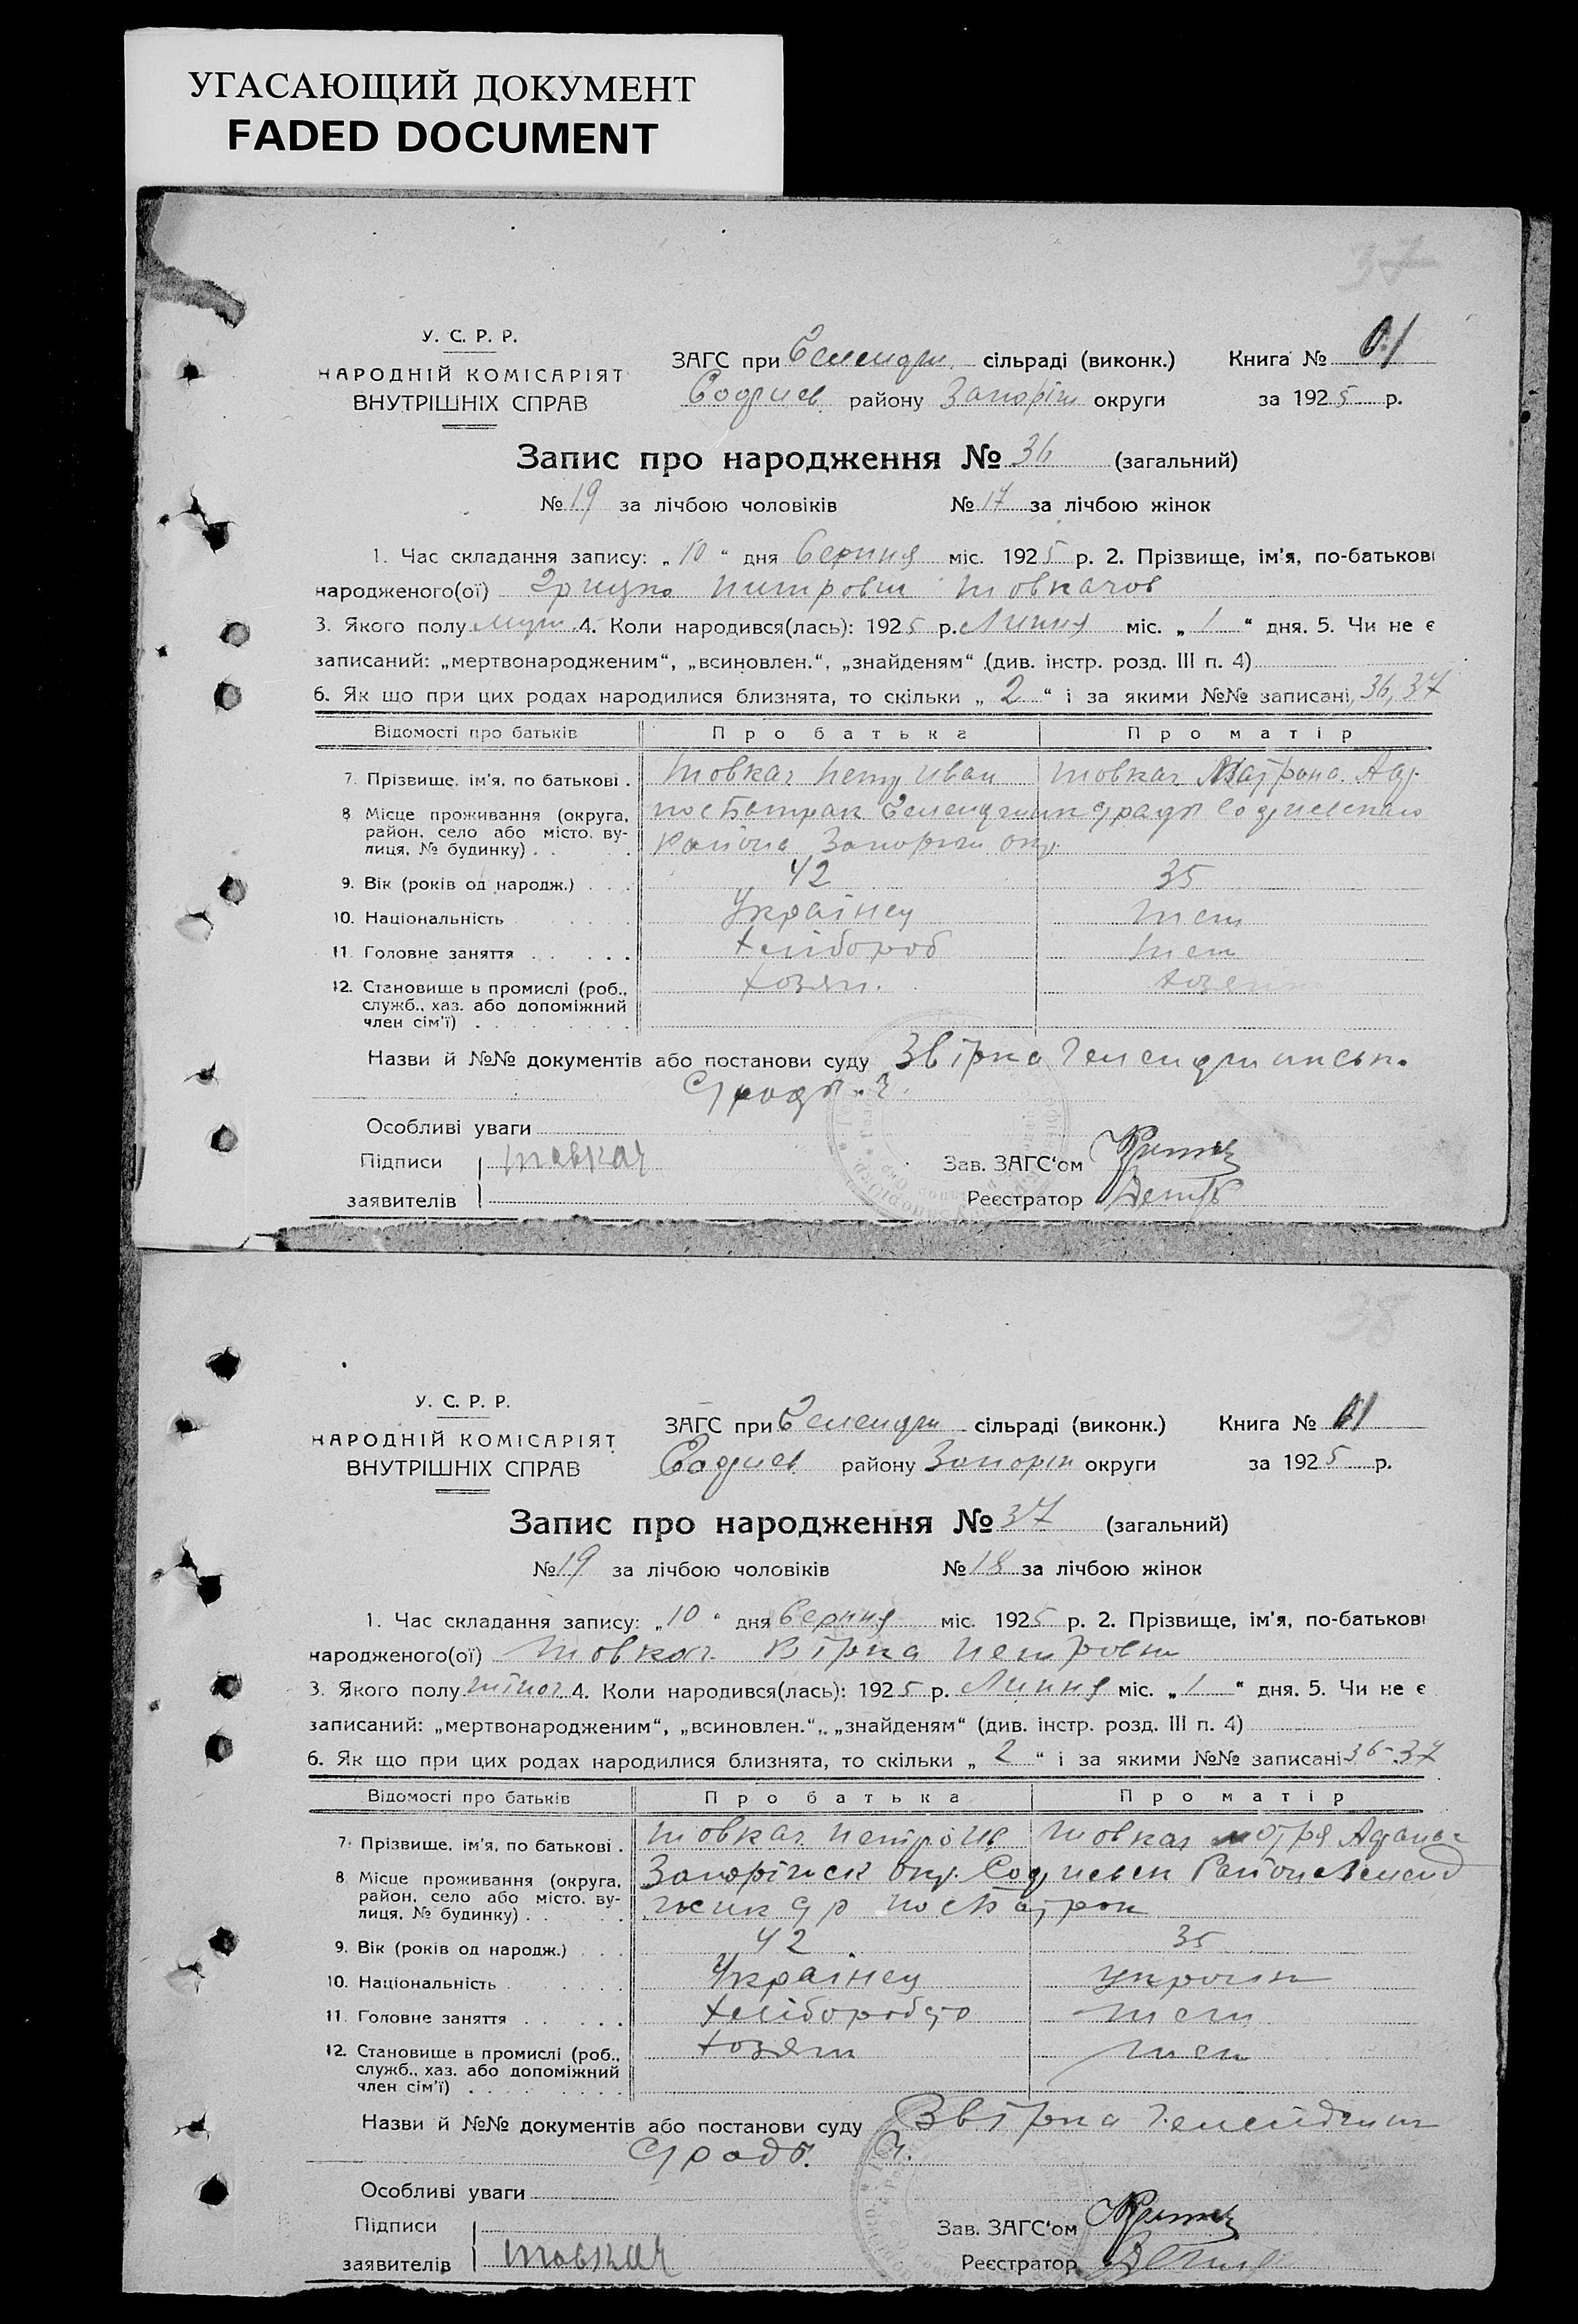 УГАСАЮЩИЙ ДОКУМЕНТ
FADED DOCUMENT
37
У. С. Р. Р.
НАРОДНІЙ КОМІСАРІЯТ
ВНУТРІШНІХ СПРАВ
ЗАГС при сільраді (виконк.) Книга № 01
району Запоріж округи за 1925 р.
Запис про народження № 36 (загальний)
№ 19 за лічбою чоловіків № 17 за лічбою жінок
1. Час складання запису: „10“ дня Серпня міс. 1925 р. 2. Прізвище, ім'я, по-батькові
народженого(ої) Грицко Питрович Товкачов
3. Якого полу муж. 4. Коли народився(лась): 1925 р. Липня міс. „1“ дня. 5. Чи не є
записаний: „мертвонародженим“, „всиновлен.“, „знайденям“ (див. інстр. розд. III п. 4)
6. Як що при цих родах народилися близнята, то скільки „2“ і за якими №№ записані 36, 37
Відомості про батьків Про батька Про матір
7. Прізвище, ім'я, по батькові . Товкач Иван Товкач Матрона
8 Місце проживання (округа,
район, село або місто, ву-
лиця, № будинку) . . . района Запоріж окр.
9. Вік (років од народж.) . . . 42 35
10. Національність Українец теж
11. Головне заняття . . . . . Хлібороб теж
12. Становище в промислі (роб.,
служб., хаз. або допоміжний
член сім'ї) . . . хозяїн. хозяїн
Назви й №№ документів або постанови суду Звірка
Особливі уваги
Підписи Товкач Зав. ЗАГС'ом
заявителів Реєстратор
38
У. С. Р. Р.
НАРОДНІЙ КОМІСАРІЯТ
ВНУТРІШНІХ СПРАВ
ЗАГС при сільраді (виконк.) Книга № 01
району Запоріж округи за 1925 р.
Запис про народження № 37 (загальний)
№ 19 за лічбою чоловіків № 18 за лічбою жінок
1. Час складання запису: „10“ дня Серпня міс. 1925 р. 2. Прізвище, ім'я, по-батькові
народженого(ої) Товкач Вірка Петровн
3. Якого полу жіноч 4. Коли народився(лась): 1925 р. Липня міс. „1“ дня. 5. Чи не є
записаний: „мертвонародженим“, „всиновлен.“, „знайденям“ (див. інстр. розд. III п. 4)
6. Як що при цих родах народилися близнята, то скільки „2“ і за якими №№ записані 36-37
Відомості про батьків Про батька Про матір
7. Прізвище, ім'я, по батькові . Товкач Петро Ив Товкач Мотря
8 Місце проживання (округа, Запоріжск окр.
район, село або місто, ву-
лиця, № будинку) . . .
9. Вік (років од народж.) . . . 42 35
10. Національність . . . . . Українец україн
11. Головне заняття . . . . . Хлібородство теж
12. Становище в промислі (роб., хозяїн теж
служб., хаз. або допоміжний
член сім'ї) . . .
Назви й №№ документів або постанови суду Звірка
Особливі уваги
Підписи Зав. ЗАГС'ом
заявителів Товкач Реєстратор